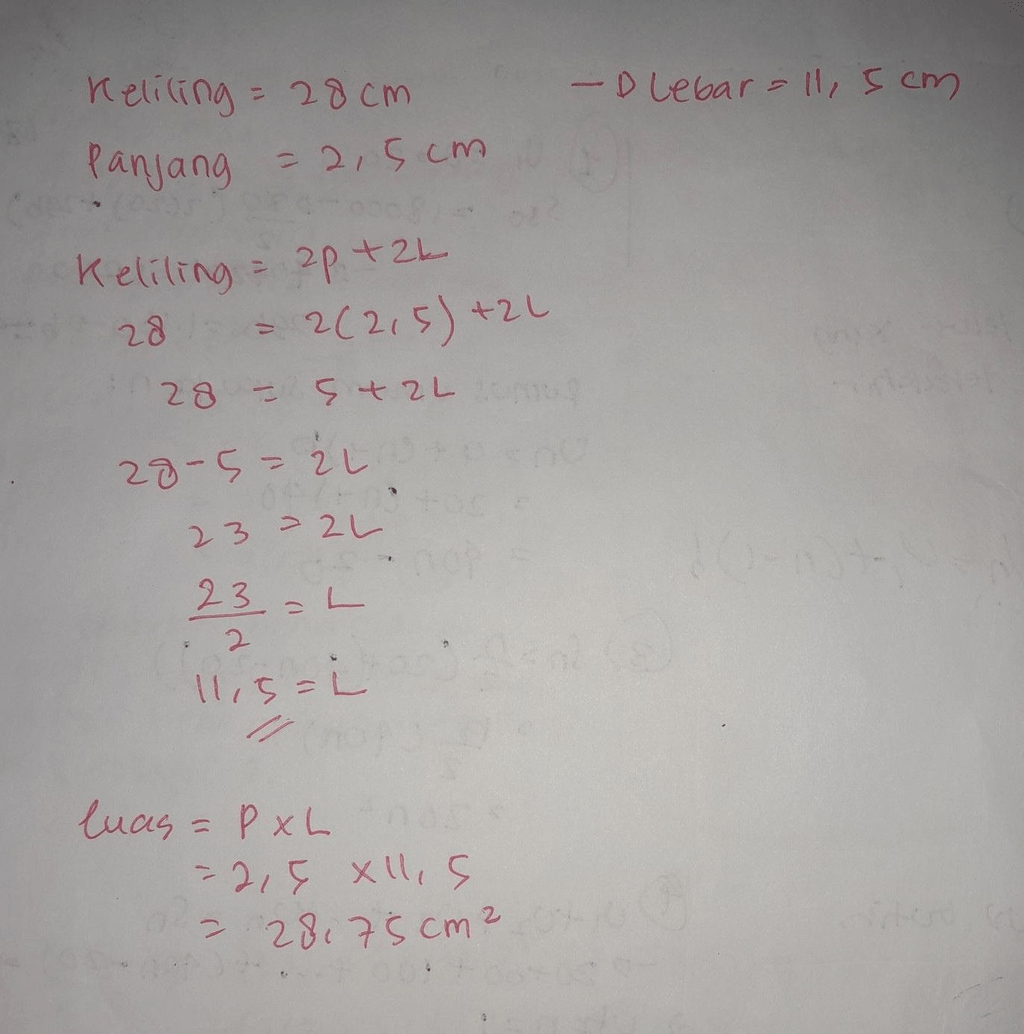 Keliling = 28 cm
→ Lebar = 11,5 cm
Panjang = 2,5 cm
Keliling = 2p + 2L
28 = 2(2,5) + 2L
28 = 5 + 2L
28 - 5 = 2L
23 = 2L
23/2 = L
11,5 = L
luas = P x L
= 2,5 x 11,5
= 28,75 cm²